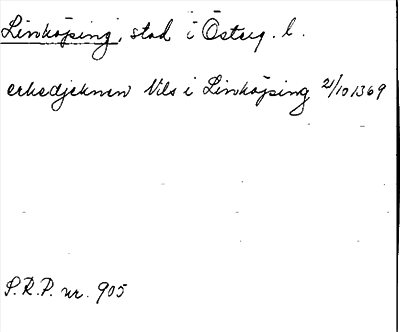 Linköping, stad i Österg. l.
erkedjeknen Nils i Linköping 21/10 1369
S.R.P. nr. 905